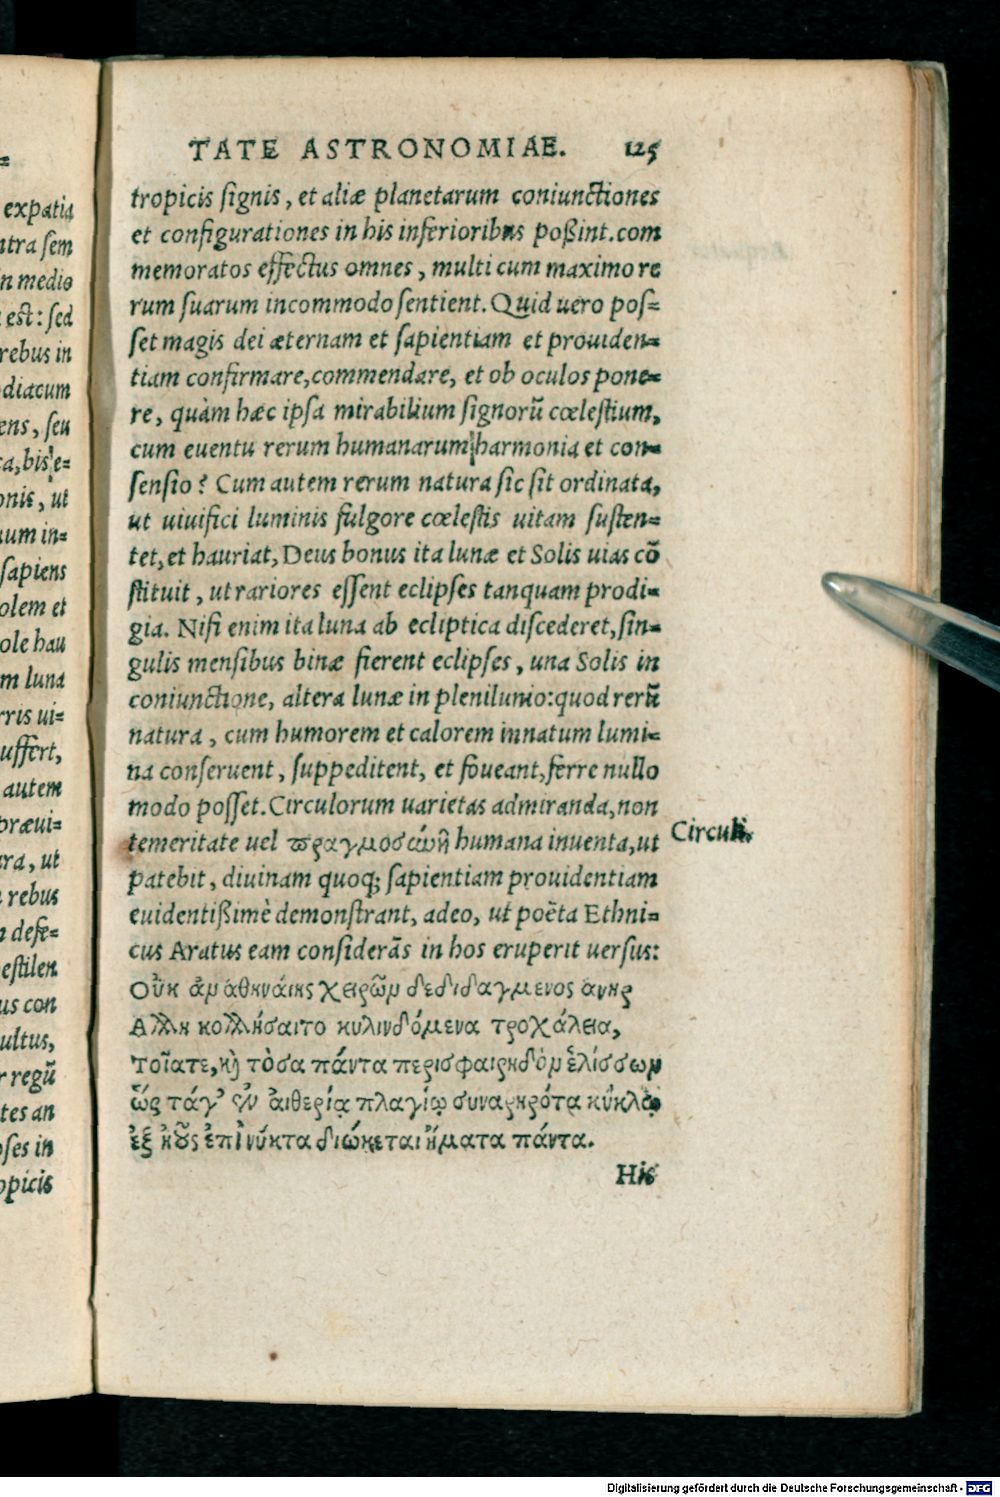 =
expatia
ntra sem
in medio
est: sed
rebus in
diacum
ens, seu
ca, bis e=
onis, ut
uum in=
sapiens
olem et
ole hau
m luna
rris ui=
uffert,
autem
præui=
ura, ut
rebus
n defe=
estilen
us con
ultus,
r regū
tes an
pses in
opicis
TATE ASTRONOMIAE. 125
tropicis signis, et aliæ planetarum coniunctiones
et configurationes in his inferioribus poßint. com
memoratos effectus omnes, multi cum maximo re
rum suarum incommodo sentient. Quid uero pos=
set magis dei æternam et sapientiam et prouiden=
tiam confirmare, commendare, et ob oculos pone=
re, quàm hæc ipsa mirabilium signorū cœlestium,
cum euentu rerum humanarum harmonia et con=
sensio? Cum autem rerum natura sic sit ordinata,
ut uiuifici luminis fulgore cœlestis uitam susten=
tet, et hauriat, Deus bonus ita lunæ et Solis uias cō
stituit, ut rariores essent eclipses tanquam prodi=
gia. Nisi enim ita luna ab ecliptica discederet, sin=
gulis mensibus binæ fierent eclipses, una Solis in
coniunctione, altera lunæ in plenilunio: quod rerū
natura, cum humorem et calorem innatum lumi=
na conseruent, suppeditent, et foueant, ferre nullo
modo posset. Circulorum uarietas admiranda, non
temeritate uel humana inuenta, ut
patebit, diuinam quoq; sapientiam prouidentiam
euidentißimè demonstrant, adeo, ut poëta Ethni=
cus Aratus eam considerās in hos eruperit uersus:
Οὐκ ἂν ἀθηνάιης χειρῶν δεδιδαγμενος ανηρ
Αλλη κολλήσαιτο κυλινδόμενα τροχάλεια,
Τοῖατε, κỳ τὸσα πάντα περισφαιρηδὸν ἑλίσσων
ὥς τάγ' αἰθερίᾳ πλαγίῳ συναρηρότα κύκλῳ
ἐξ ἠοῦς ἐπὶ νύκτα διώκεται ἤματα πάντα.
His
Circuli.
Digitalisierung gefördert durch die Deutsche Forschungsgemeinschaft - DFG